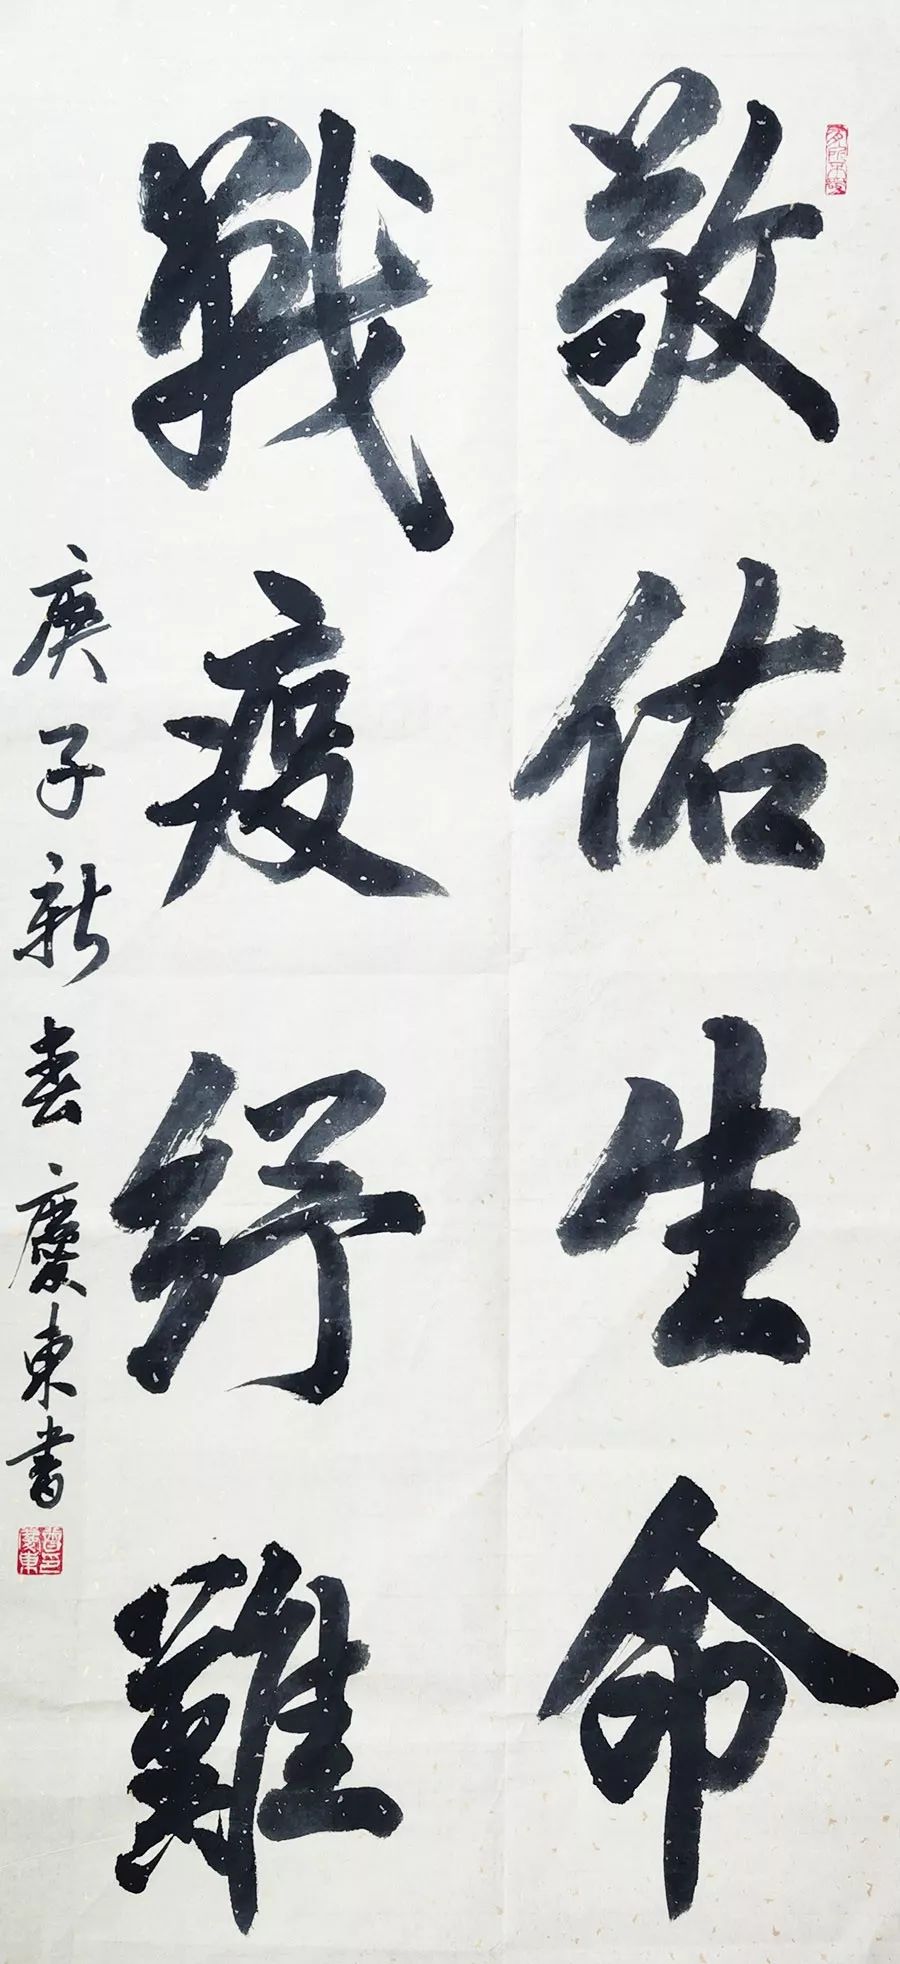 敬佑生命
戰疫紓難
庚子新春慶東書